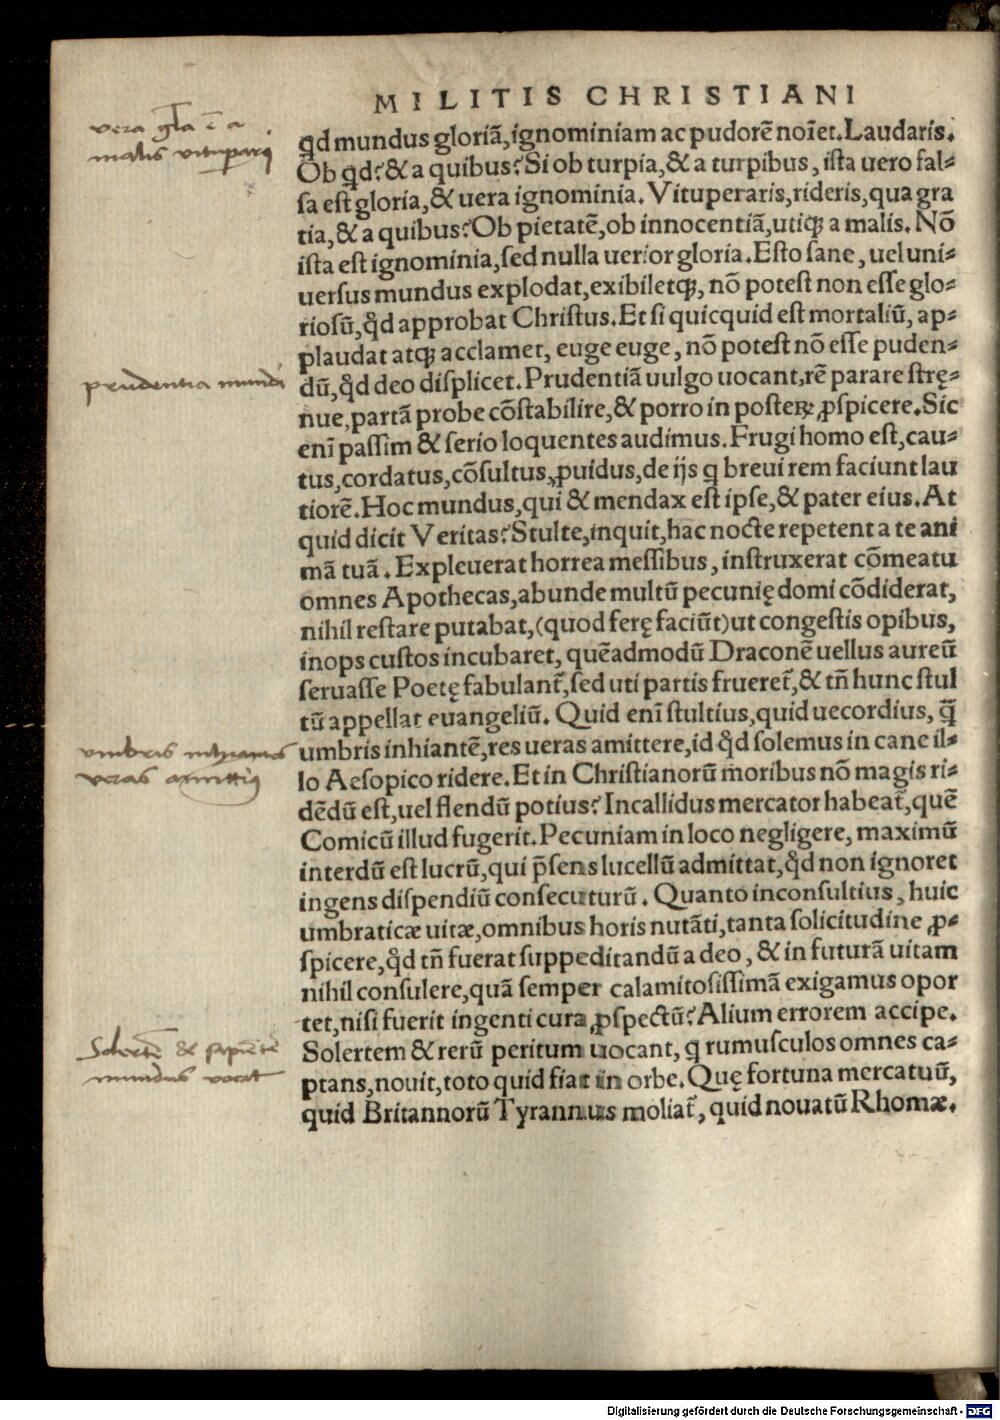 MILITIS CHRISTIANI
vera gl̄a ē a
malis vituperari
qd mundus gloriā, ignominiam ac pudorē noīet. Laudaris.
Ob qd? & a quibus? Si ob turpia, & a turpibus, ista uero fal-
sa est gloria, & uera ignominia. Vituperaris, rideris, qua gra
tia, & a quibus? Ob pietatē, ob innocentiā, utiqꝫ a malis. Nō
ista est ignominia, sed nulla uerior gloria. Esto sane, uel uni-
uersus mundus explodat, exibiletqꝫ, nō potest non esse glo-
riosū, qd̊ approbat Christus. Et si quicquid est mortaliū, ap-
plaudat atqꝫ acclamet, euge euge, nō potest nō esse puden-
prudentia mundi
dū, qd̊ deo displicet. Prudentiā uulgo uocant, rē parare strę-
nue, partā probe cōstabilire, & porro in posteꝝ ꝓspicere. Sic
enī passim & serio loquentes audimus. Frugi homo est, cau-
tus, cordatus, cōsultus, ꝓuidus, de ijs q breui rem faciunt lau
tiorē. Hoc mundus, qui & mendax est ipse, & pater eius. At
quid dicit Veritas? Stulte, inquit, hac nocte repetent a te ani
mā tuā. Expleuerat horrea messibus, instruxerat cōmeatu
omnes Apothecas, abunde multū pecunię domi cōdiderat,
nihil restare putabat, (quod ferę faciūt) ut congestis opibus,
inops custos incubaret, quēadmodū Draconē uellus aureū
seruasse Poetę fabulant̄, sed uti partis frueret̄, & tn̄ hunc stul
tū appellat euangeliū. Quid enī stultius, quid uecordius, q̄
umbris inhiantes
veras amitti
umbris inhiantē, res ueras amittere, id qd̊ solemus in cane il-
lo Aesopico ridere. Et in Christianorū moribus nō magis ri-
dēdū est, uel flendū potius? Incallidus mercator habeat̄, quē
Comicū illud fugerit. Pecuniam in loco negligere, maximū
interdū est lucrū, qui p̄sens lucellū admittat, qd̊ non ignoret
ingens dispendiū consecuturū. Quanto inconsultius, huic
umbraticæ uitæ, omnibus horis nutāti, tanta solicitudine ꝓ-
spicere, qd̊ tn̄ fuerat suppeditandū a deo, & in futurā uitam
nihil consulere, quā semper calamitosissimā exigamus opor
tet, nisi fuerit ingenti cura ꝓspectū? Alium errorem accipe.
Solertē & sapiētē
mundus vocat
Solertem & rerū peritum uocant, q rumusculos omnes ca-
ptans, nouit, toto quid fiat in orbe. Quę fortuna mercatuū,
quid Britannorū Tyrannus moliat̄, quid nouatū Rhomæ.
Digitalisierung gefördert durch die Deutsche Forschungsgemeinschaft - DFG